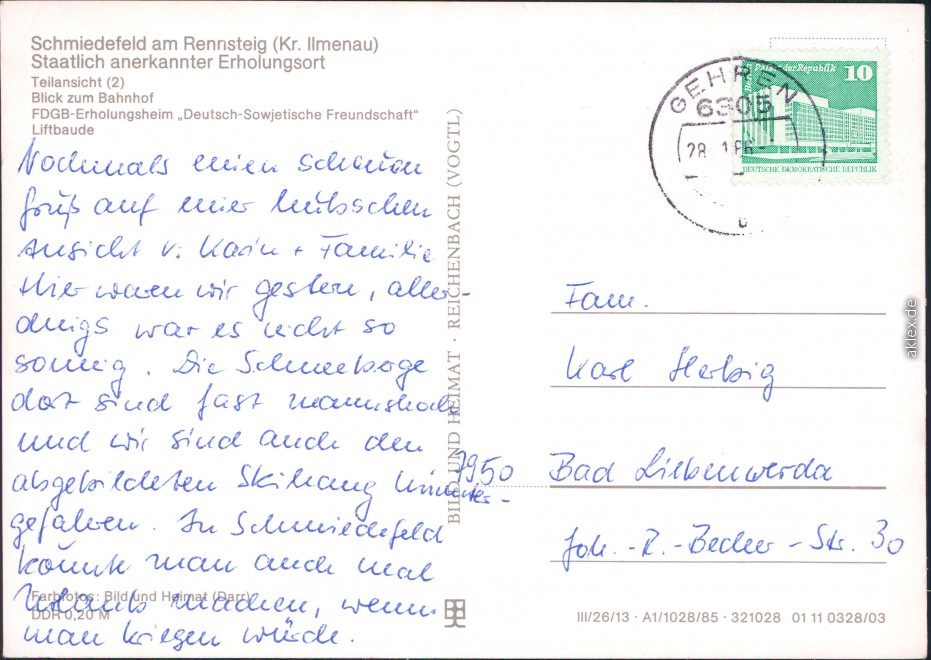 Schmiedefeld am Rennsteig (Kr. Ilmenau)
Staatlich anerkannter Erholungsort
Teilansicht (2)
Blick zum Bahnhof
FDGB-Erholungsheim „Deutsch-Sowjetische Freundschaft“
Liftbaude
Nochmals einen schönen
Gruß auf einer hübschen
Ansicht v. Karin + Familie
Hier waren wir gestern, aller-
dings war es nicht so
sonnig. Die Schneeberge
dort sind fast mannshoch
und wir sind auch den
abgebildeten Skihang hinunter-
gefahren. In Schmiedefeld
könnte man auch mal
Urlaub machen, wenn
man kriegen würde.
Farbfotos: Bild und Heimat (Darr)
DDR 0,20 M
BILD UND HEIMAT · REICHENBACH (VOGTL)
GEHREN
6305
28
b
Palast der Republik
10
DEUTSCHE DEMOKRATISCHE REPUBLIK
Fam.
Karl Herbig
7950 Bad Liebenwerda
Joh.-R.-Becher-Str. 30
III/26/13 · A1/1028/85 · 321028 01 11 0328/03
aklex.de